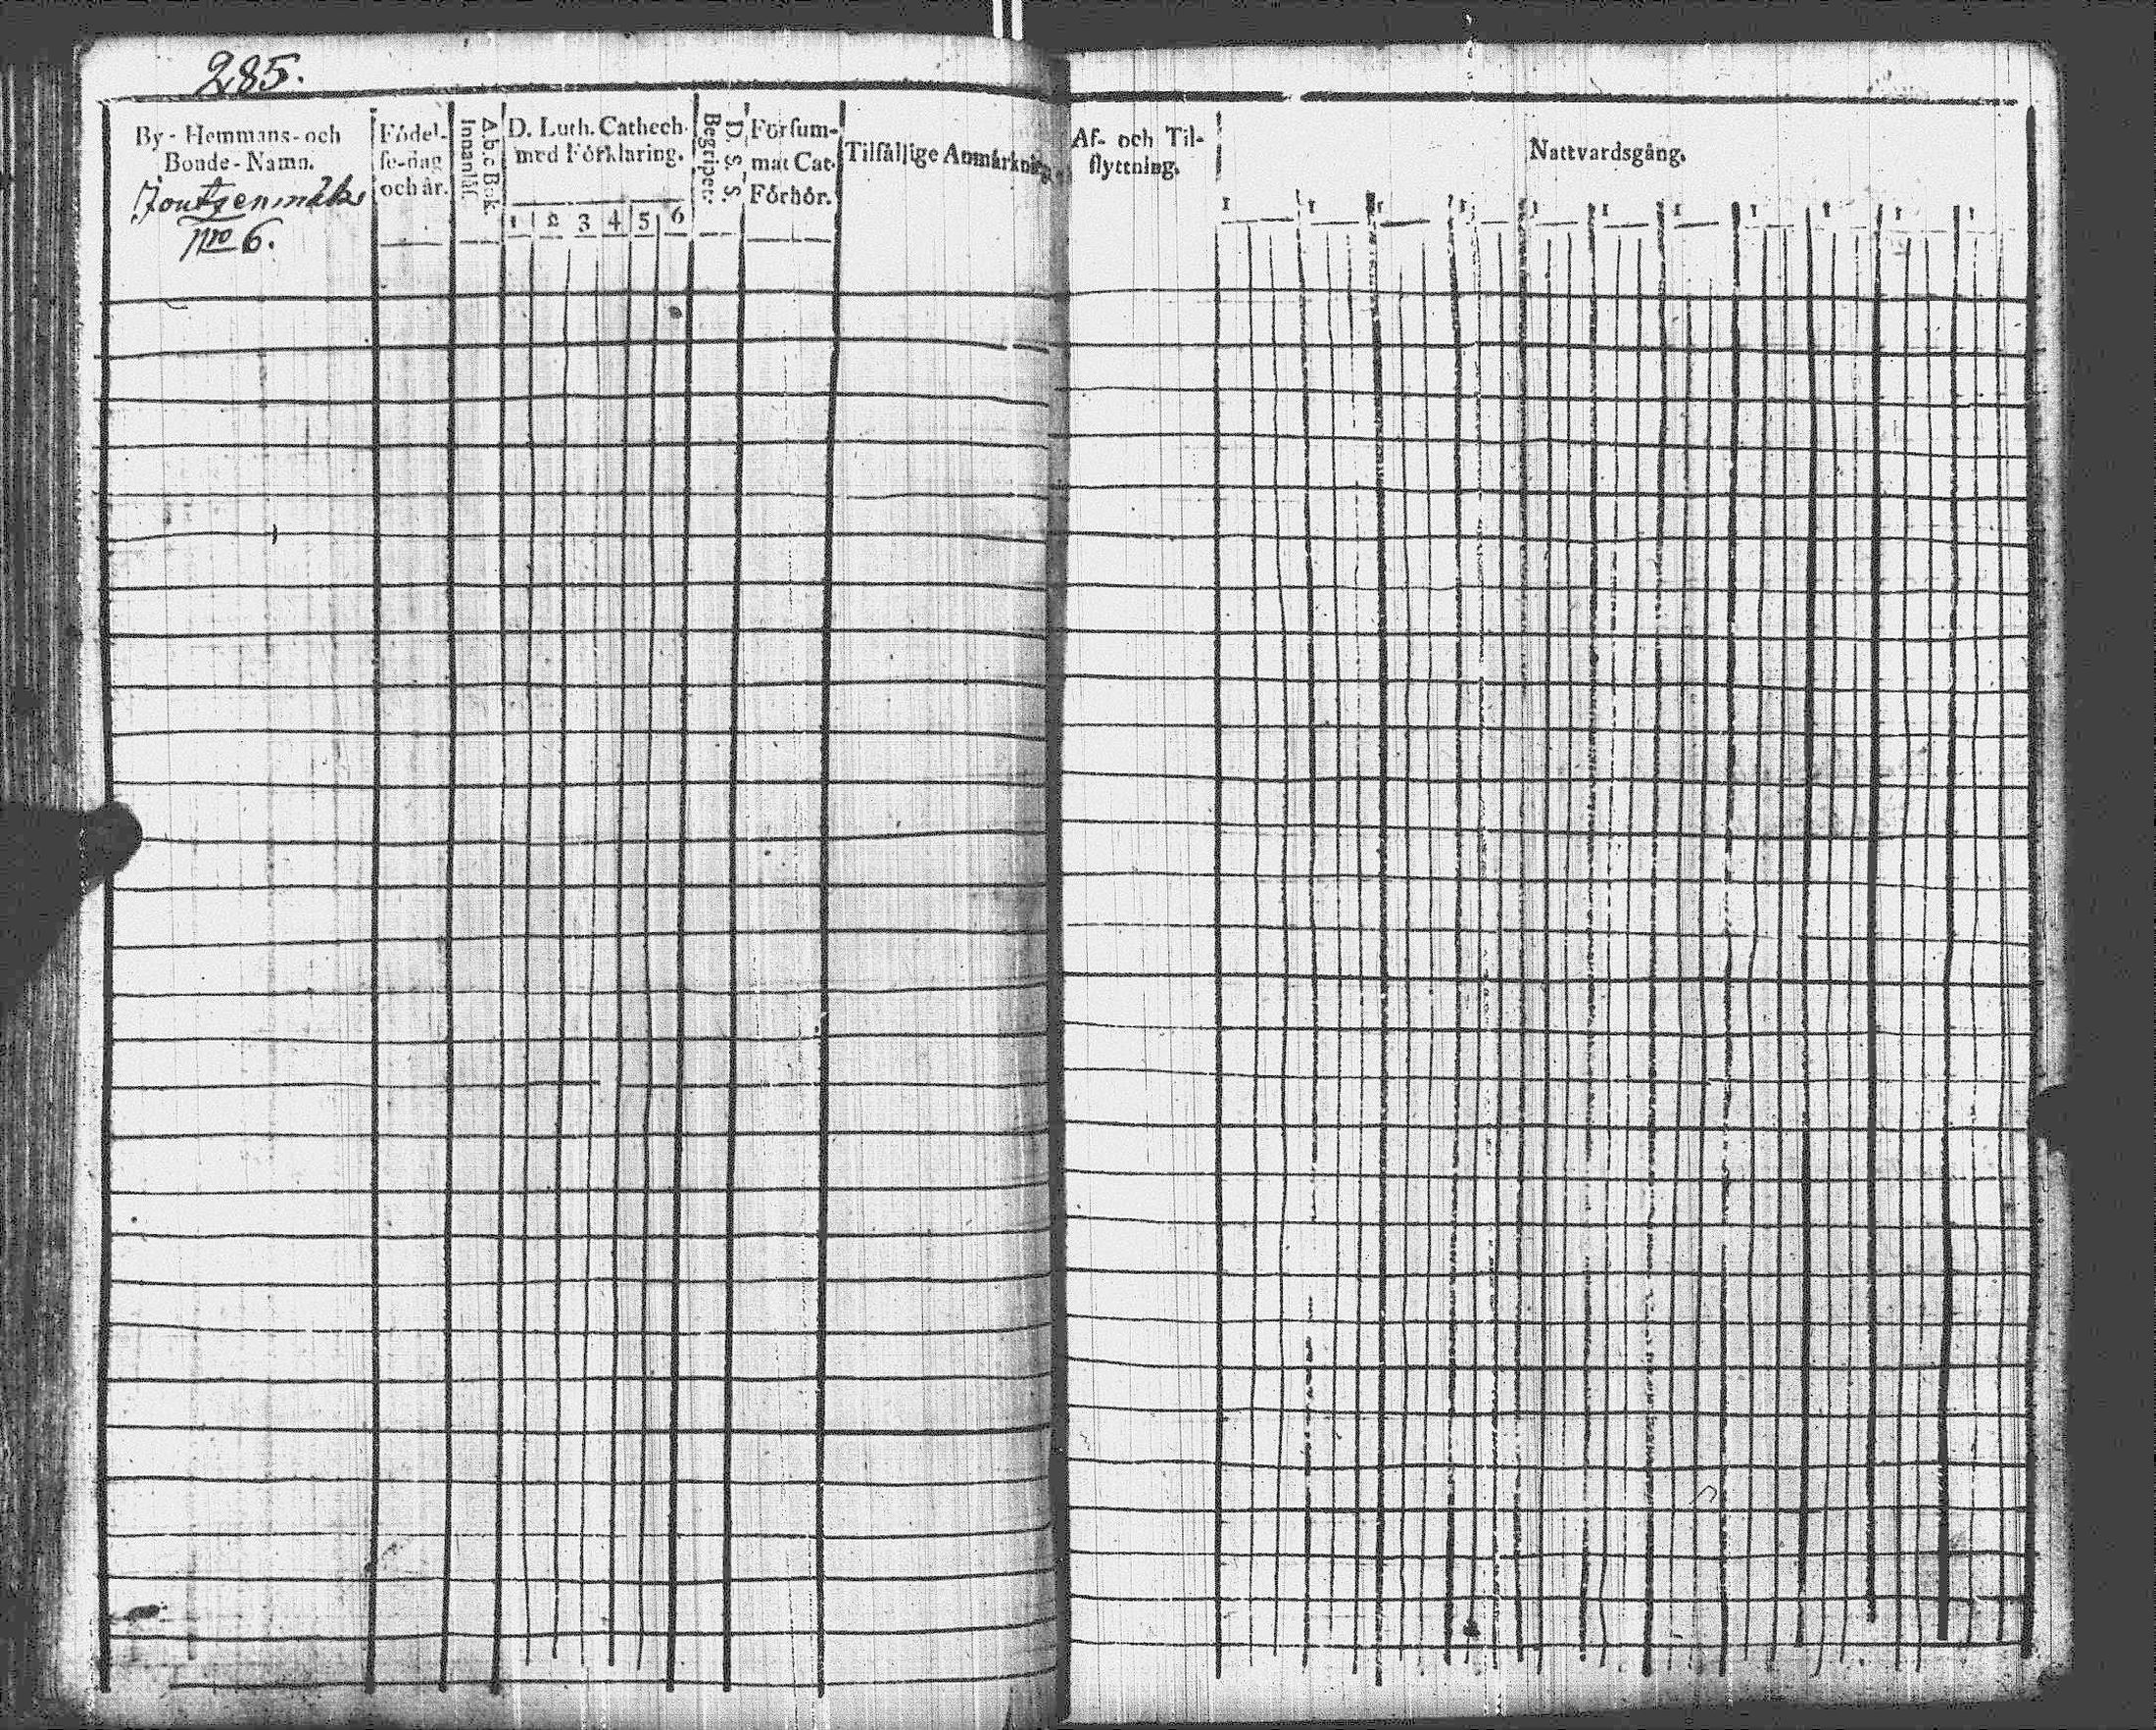 285.
By- Hemmans- och
Bonde- Namn.
Nro 6.
Födel-
se-dag
och år.
A b c Bok.
Innanläs.
D. Luth. Cathech.
med Förklaring.
1 2 3 4 5 6
Begriper.
D. S. S.
Försum-
mat Cat.
Förhör.
Tilfällige Anmärkning.
Af- och Til-
flyttning.
Nattvardsgång.
1 1 1 1 1 1 1 1 1 1 1